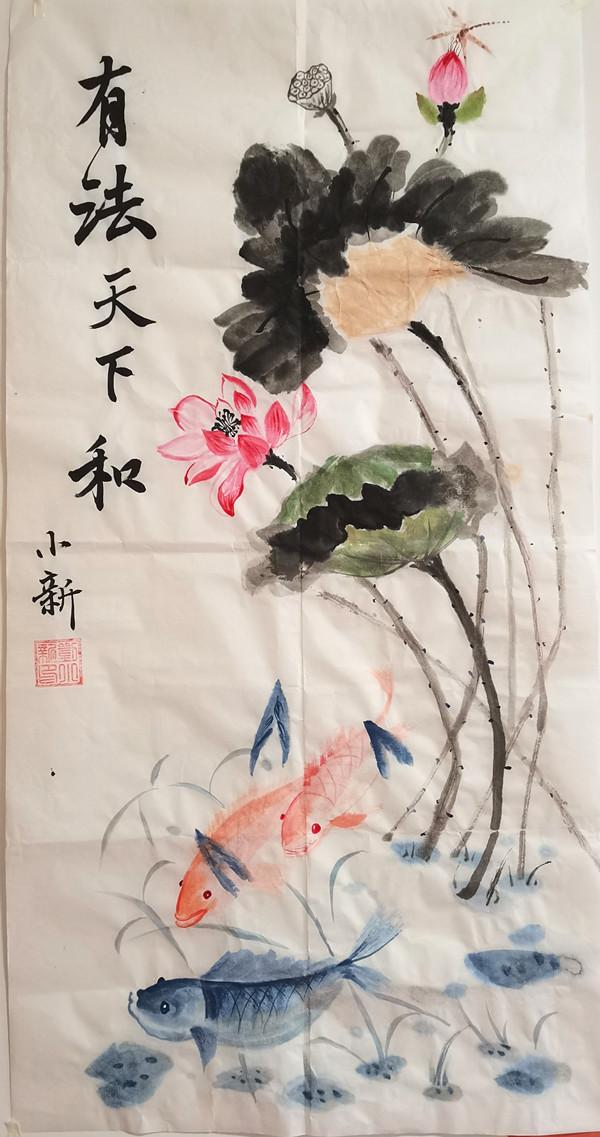 有法天下和
小新